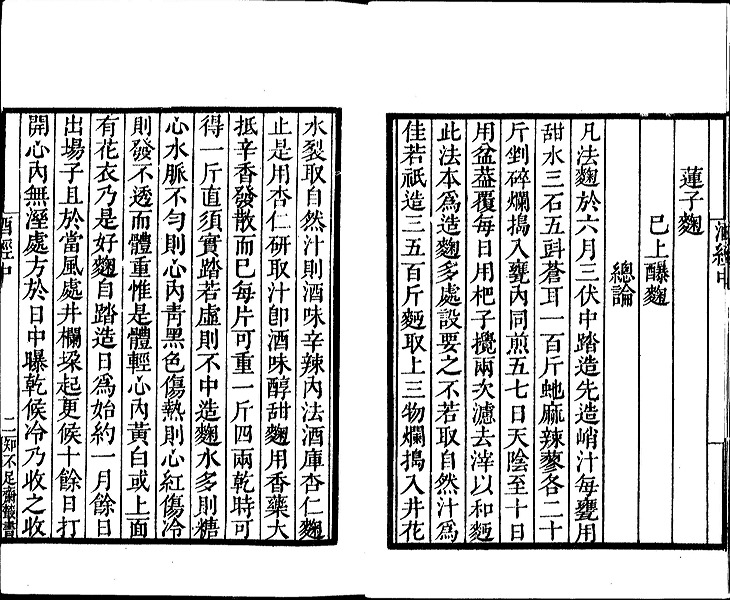 蓮子麴
已上䤖麴
總論
凡法麴於六月三伏中踏造先造峭汁每甕用
甜水三石五㪷蒼耳一百斤虵麻辣蓼各二十
斤剉碎爛搗入甕內同煎五七日天陰至十日
用盆葢覆每日用杷子攪兩次濾去滓以和麪
此法本爲造麴多處設要之不若取自然汁爲
佳若祇造三五百斤麪取上三物爛搗入井花
水裂取自然汁則酒味辛辣內法酒庫杏仁麴
止是用杏仁硏取汁卽酒味醇甜麴用香藥大
抵辛香發散而已每片可重一斤四兩乾時可
得一斤直須實踏若虛則不中造麴水多則糖
心水脈不勻則心內靑黑色傷熱則心紅傷冷
則發不透而體重惟是體輕心內黃白或上面
有花衣乃是好麴自踏造日爲始約一月餘日
出場子且於當風處井欄垜起更候十餘日打
開心內無溼處方於日中曝乾候冷乃收之收
酒經中
二
知不足齋叢書